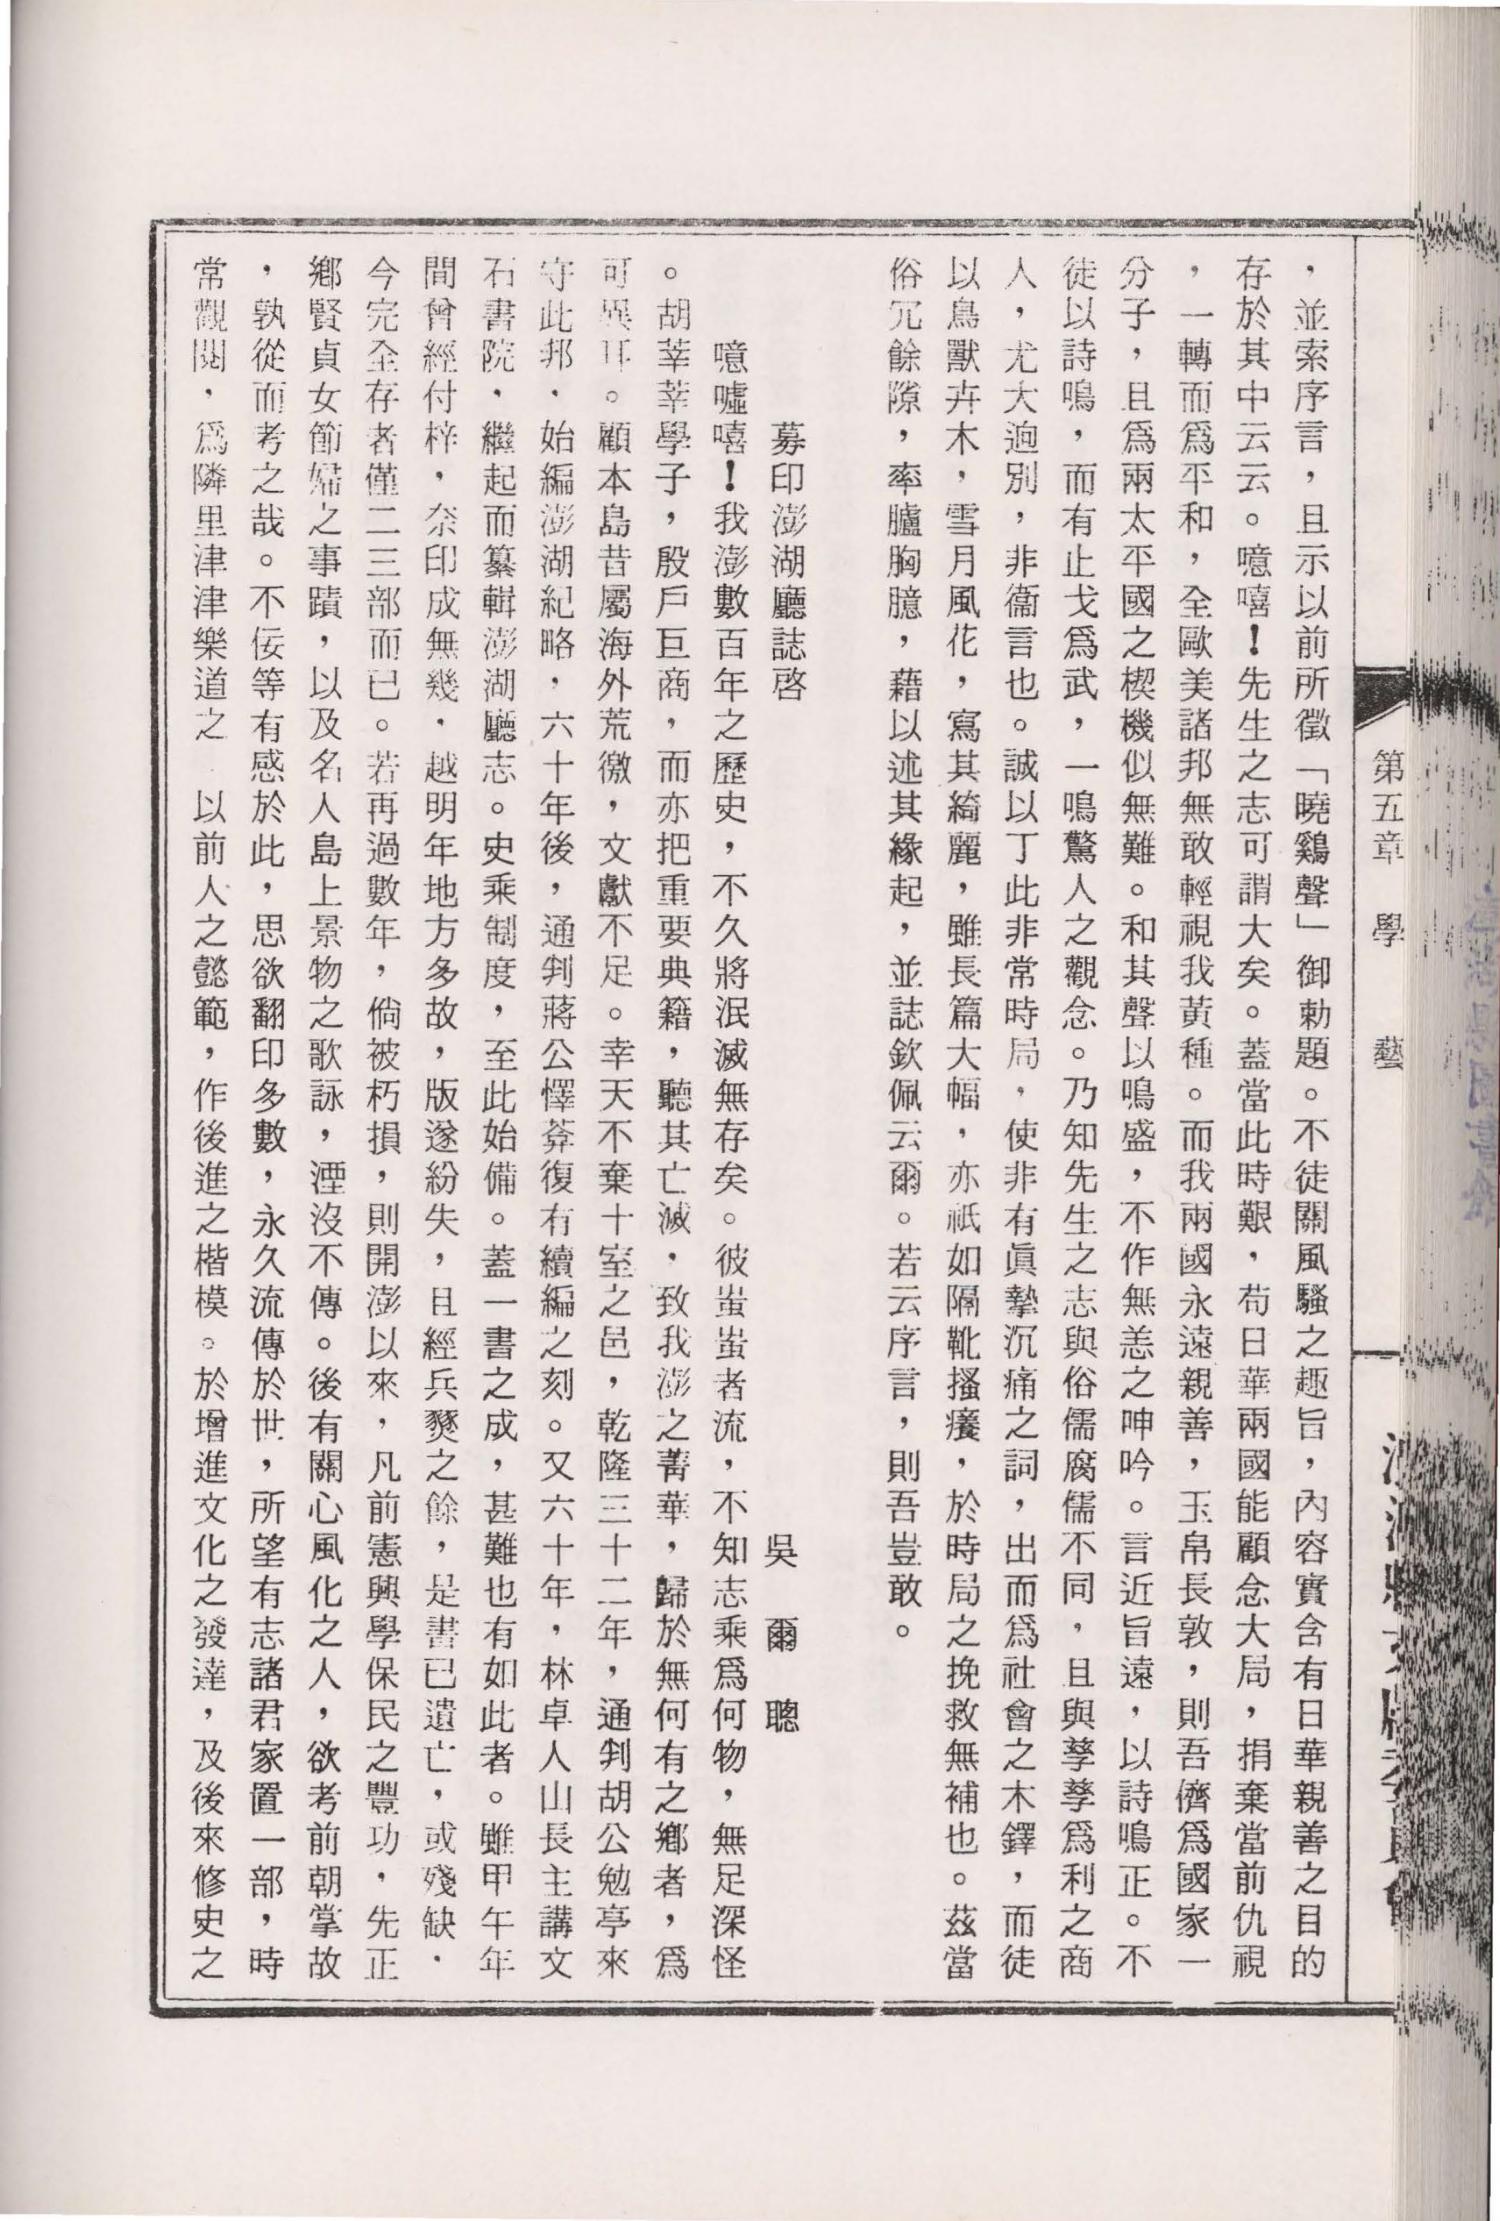 第五章　學　藝
，並索序言，且示以前所徵「曉鷄聲」御勅題。不徒關風騷之趣旨，內容實含有日華親善之目的
存於其中云云。噫嘻！先生之志可謂大矣。蓋當此時艱，苟日華兩國能顧念大局，捐棄當前仇視
，一轉而爲平和，全歐美諸邦無敢輕視我黃種。而我兩國永遠親善，玉帛長敦，則吾儕爲國家一
分子，且爲兩太平國之楔機似無難。和其聲以鳴盛，不作無恙之呻吟。言近旨遠，以詩鳴正。不
徒以詩鳴，而有止戈爲武，一鳴驚人之觀念。乃知先生之志與俗儒腐儒不同，且與孳孳爲利之商
人，尤大逈別，非衞言也。誠以丁此非常時局，使非有眞摯沉痛之詞，出而爲社會之木鐸，而徒
以鳥獸卉木，雪月風花，寫其綺麗，雖長篇大幅，亦祇如隔靴搔癢，於時局之挽救無補也。茲當
俗冗餘隙，率臚胸臆，藉以述其緣起，並誌欽佩云爾。若云序言，則吾豈敢。
募印澎湖廳誌啓　吳爾聰
噫嘘嘻！我澎數百年之歷史，不久將泯滅無存矣。彼蚩蚩者流，不知志乘爲何物，無足深怪
。胡莘莘學子，殷戶巨商，而亦把重要典籍，聽其亡滅，致我澎之菁華，歸於無何有之鄉者，爲
可異耳。顧本島昔屬海外荒徼，文獻不足。幸天不棄十室之邑，乾隆三十二年，通判胡公勉亭來
守此邦，始編澎湖紀略，六十年後，通判蔣公懌葊復有續編之刻。又六十年，林卓人山長主講文
石書院，繼起而纂輯澎湖廳志。史乘制度，至此始備。蓋一書之成，甚難也有如此者。雖甲午年
間曾經付梓，奈印成無幾，越明年地方多故，版遂紛失，且經兵燹之餘，是書已遺亡，或殘缺，
今完全存者僅二三部而已。若再過數年，倘被朽損，則開澎以來，凡前憲興學保民之豐功，先正
鄉賢貞女節婦之事蹟，以及名人島上景物之歌詠，湮沒不傳。後有關心風化之人，欲考前朝掌故
，孰從而考之哉。不佞等有感於此，思欲翻印多數，永久流傳於世，所望有志諸君家置一部，時
常觀閱，爲隣里津津樂道之　以前人之懿範，作後進之楷模。於增進文化之發達，及後來修史之